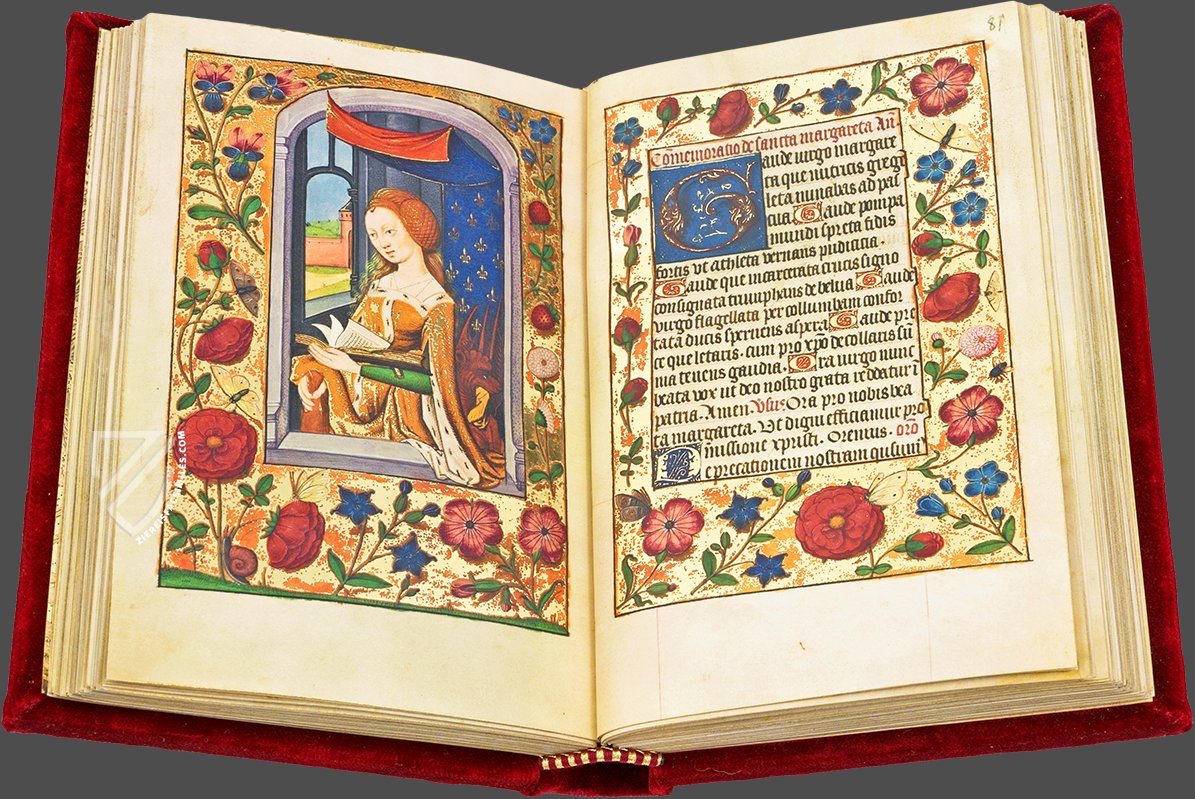 81
Comemoratio de sancta margareta An̄
Gaude virgo margare
ta que nutricis gregē
leta minabas ad pas
cua. Gaude pompā
mundi spreta fidis
fortis vt athleta vernans pudicicia.
Gaude que incarcerata crucis signo
consignata triumphans de belua Gaude
virgo flagellata per columbam confor
tata ducis spernens aspera Gaude pre
ce que letaris. cum pro xp̄o decollaris sū
ma tenens gaudia. Ora virgo nunc
beata vox ut deo nostro grata reddatur i
patria. Amen. Vsus Ora pro nobis bea
ta margareta. Vt digni efficiamur pro
missione xpristi. Oremus. orō
Deprecationem nostram quesum̄
ZIEREIS FACSIMILES.COM